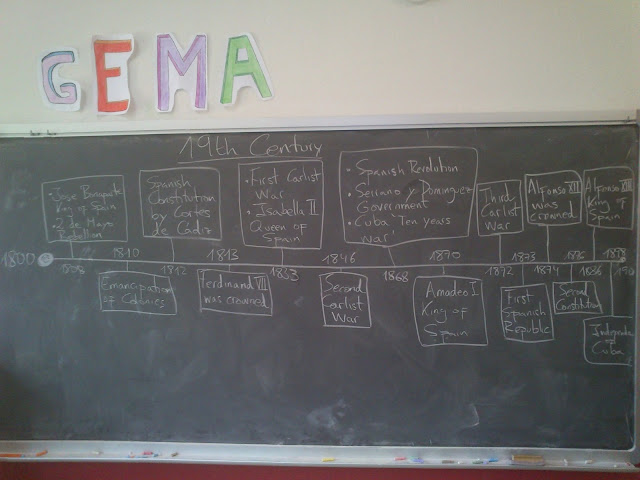 GEMA
19th Century
• José Bonaparte
King of Spain
• 2 de Mayo
Rebellion
Spanish
Constitution
by Cortes
de Cádiz
• First Carlist
War
• Isabella II
Queen of
Spain
• Spanish Revolution
• Serrano y Domínguez
Government
• Cuba "Ten years
War"
Third
Carlist
War
Alfonso XII
was
crowned
Alfonso XIII
King of
Spain
1800
1808
1810
1812
1813
1833
1846
1868
1870
1872
1873
1874
1876
1886
1898
Emancipation
of Colonies
Ferdinand VII
was crowned
Second
Carlist
War
Amadeo I
King of
Spain
First
Spanish
Republic
Second
Constitution
of
Cuba